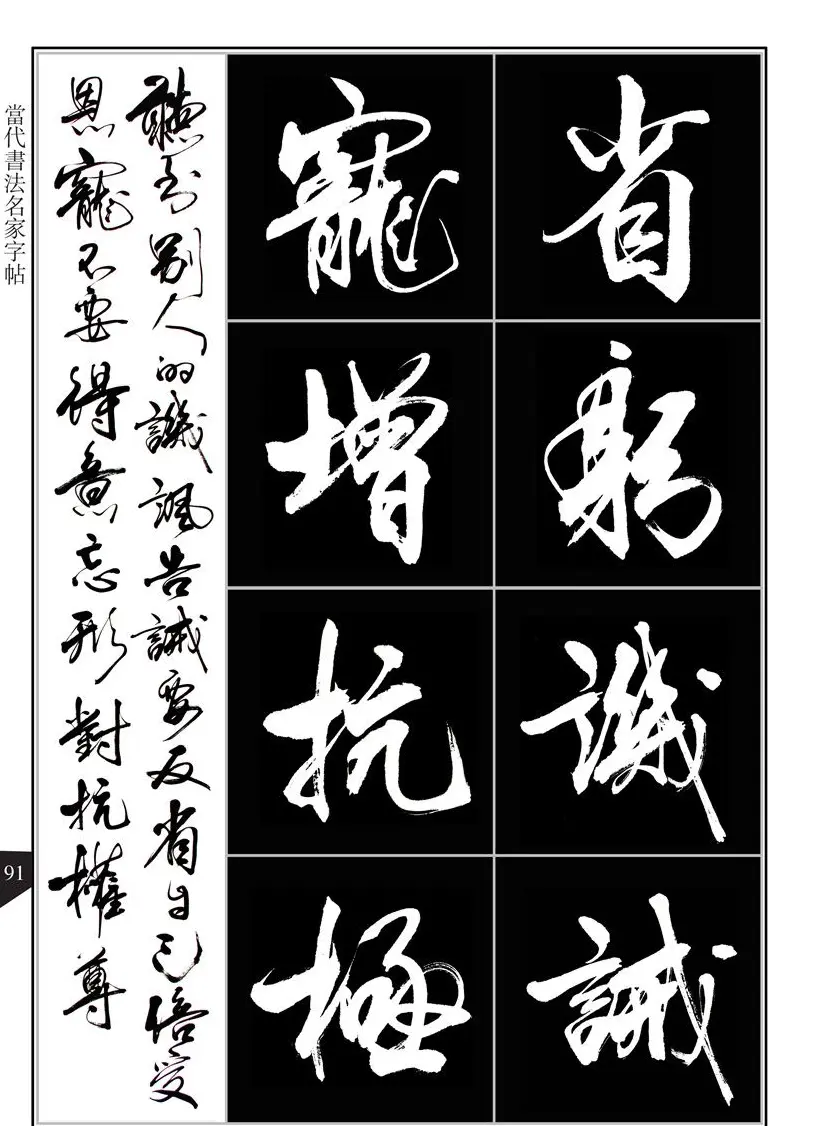 省躬譏誡
寵增抗極
聽到別人的譏諷告誡要反省自己倍受
恩寵不要得意忘形對抗權尊
當代書法名家字帖
91